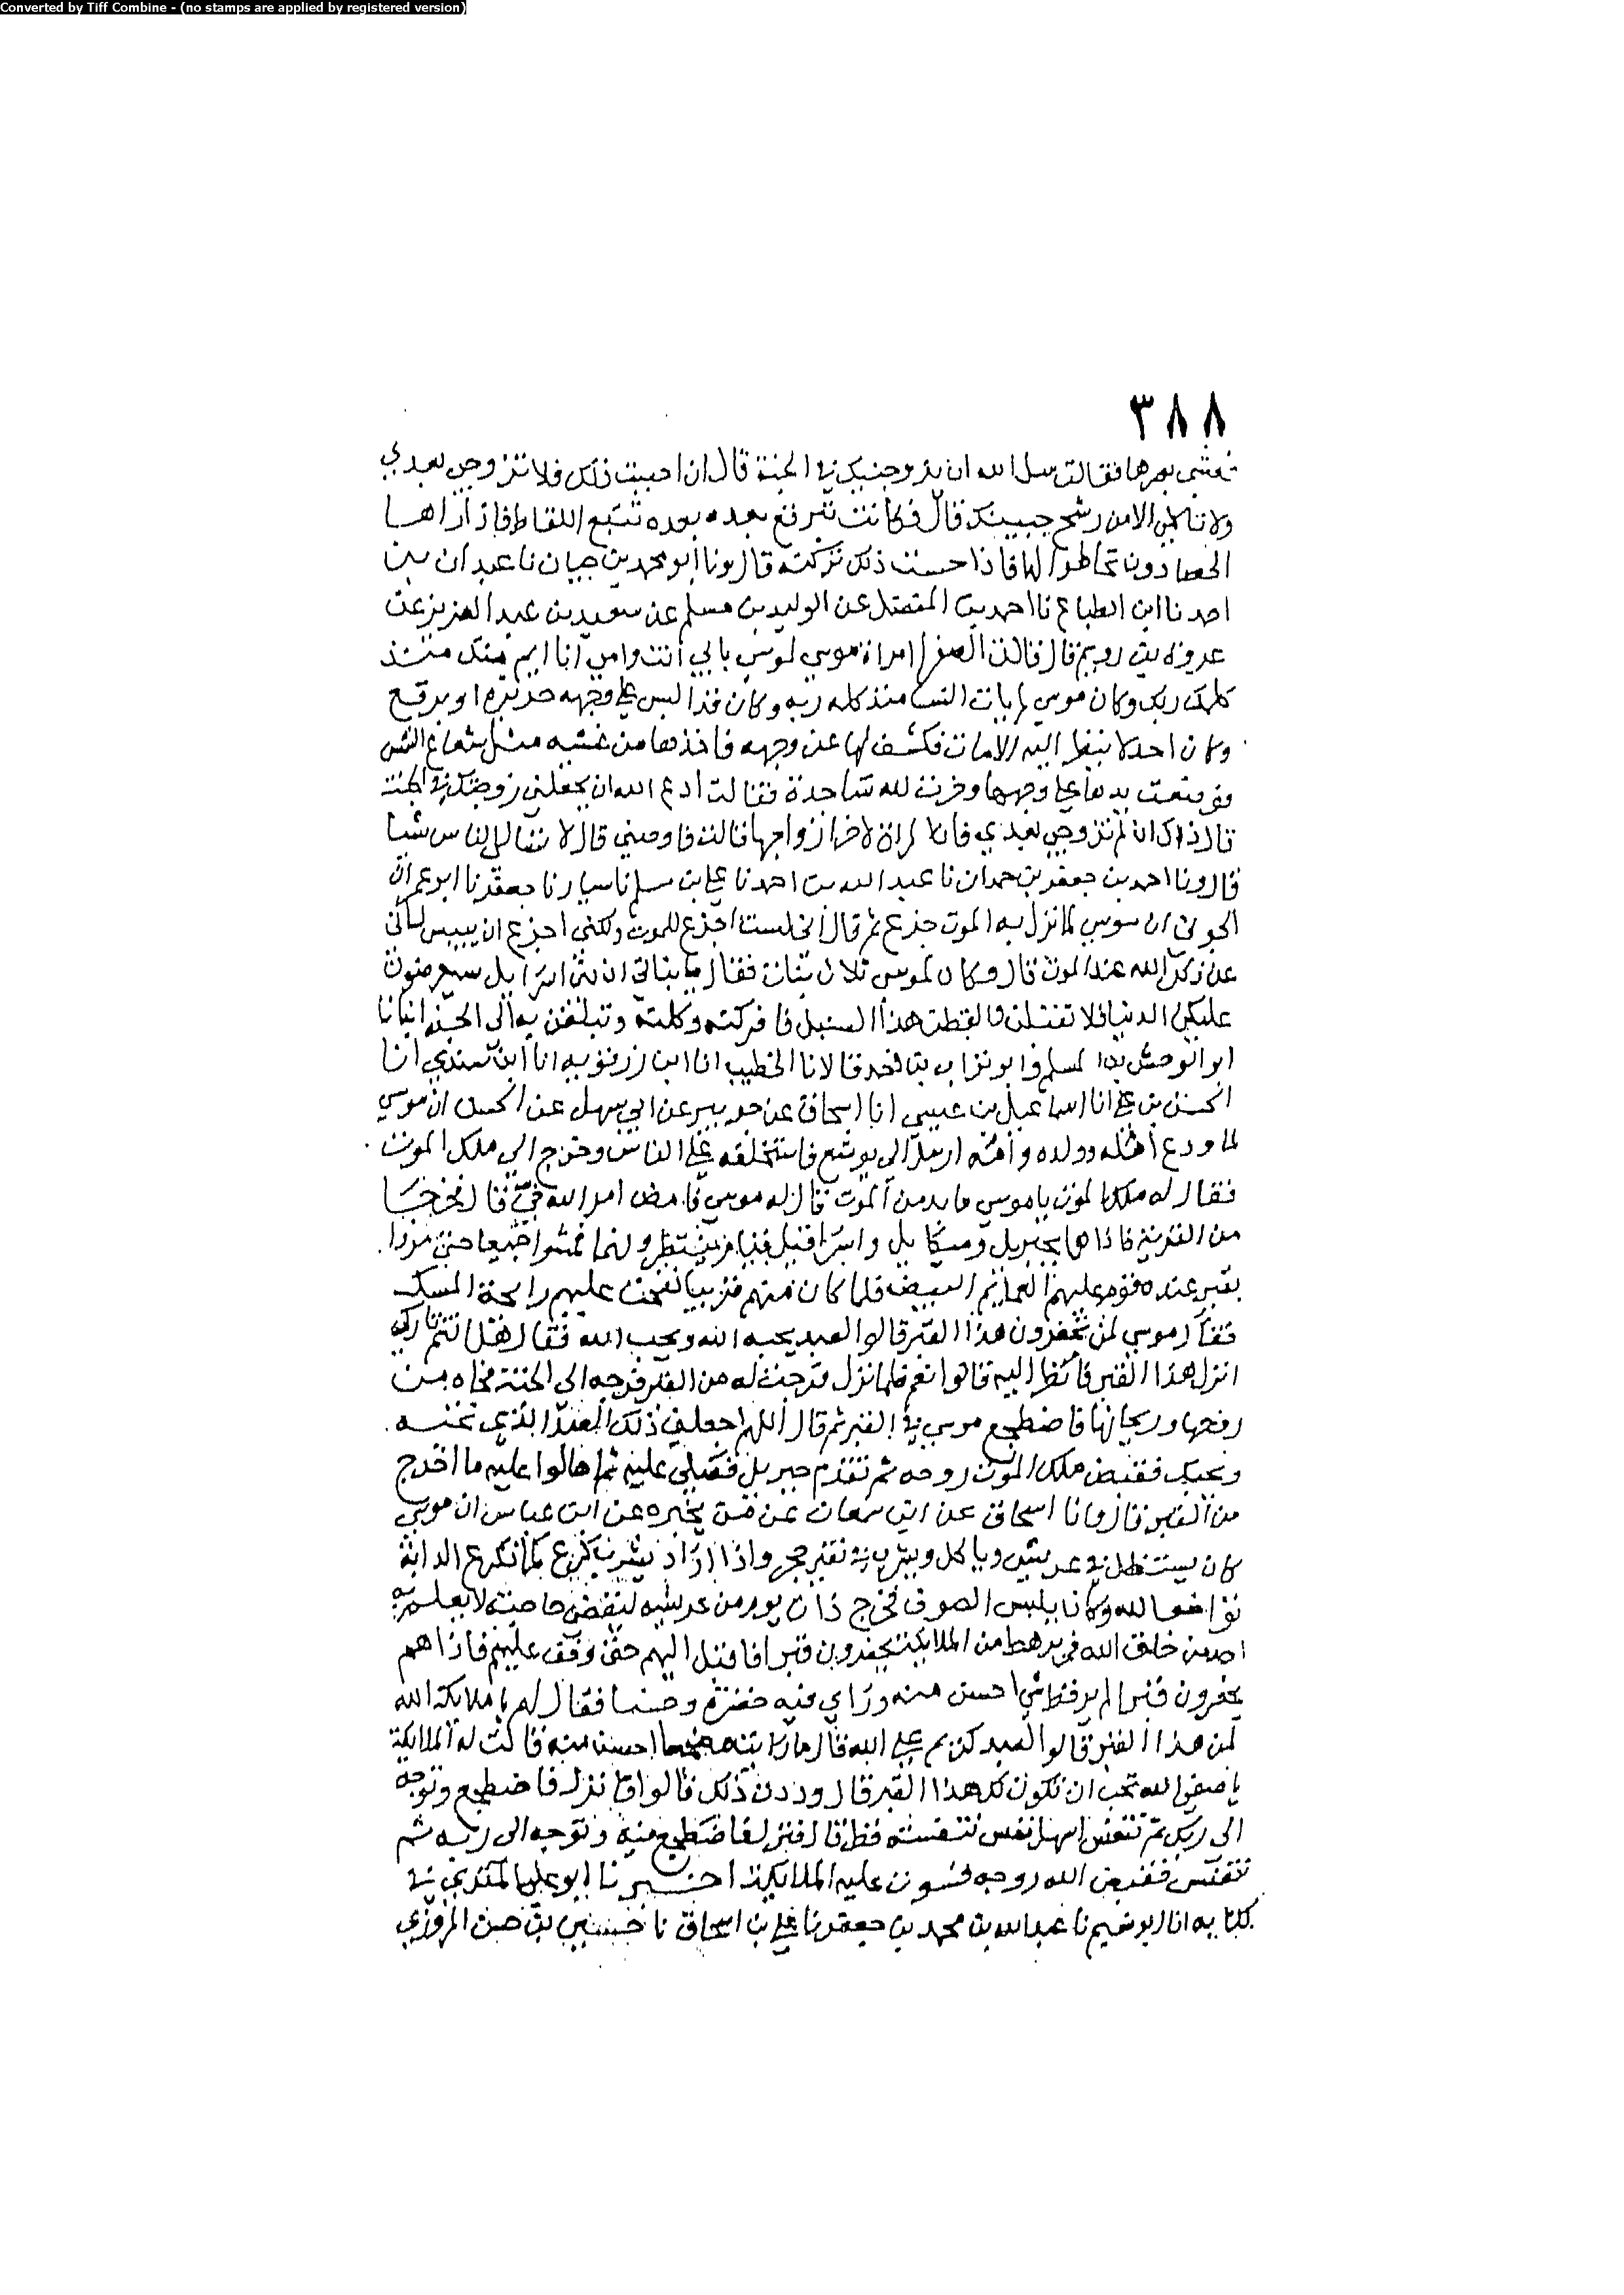 Converted by Tiff Combine - (no stamps are applied by registered version)
٣٨٨
تعشي بصرها فقالت سل الله ان يزوجنيك في الجنة قال ان احببت ذلك فلا تزوجي بعدي
ولا تاكلي الا من رشح جبينك قال فكانت تتبرقع بعده تتبع اللقاط فاذا راها
الحصادون تخاطوا لها فاذا احست ذلك تركته قال ونا ابو محمد بن حيان نا عبدان بن
احمد نا ابن الطباع نا احمد بن المفضل عن الوليد بن مسلم عن سعيد بن عبد العزيز عن
عروة بن رويم قال قالت الصفرا امراة موسي لموسي بابي انت وامي انا ايم منك منذ
كلمك ربك وكان موسي لم يات النسا منذ كلمه ربه وكان قد البس علي وجهه حريرة او برقع
وكان احد لا ينظر اليه الا مات فكشف لها عن وجهه فاخذها من غشيه مثل شعاع الشمس
فوضعت يدها علي وجهها وخرت لله ساجدة فقالت ادع الله ان يجعلني زوجتك في الجنة
قال ذاك ان لم تزوجي بعدي فان المراة لاخر ازواجها قالت فاوصني قال لا تسالي الناس شيا
قال ونا احمد بن جعفر بن حمدان نا عبد الله بن احمد نا علي بن مسلم نا سيار نا جعفر نا ابو عمران
الجوني ان موسي لما نزل به الموت جزع ثم قال اني لست اجزع للموت ولكني اجزع ان ييبس لساني
عن ذكر الله عند الموت قال وكان لموسي ثلاث بنات فقال يا بناتي ان بني اسرايل سيعرضون
عليكن الدنيا فلا تقبلن والقطن هذا السنبل فافركنه وكلنه وتبلغن به الي الجنه انبانا
ابو الوحش بن المسلم وابو تراب قالا نا الخطيب انا ابن زرقويه انا ابن سندي انا
الحسن بن علي انا اسماعيل بن عيسي انا اسحاق عن جويبر عن ابي سهل عن الحسن ان موسي
لما ودع اهله وولده وامه ارسل الي يوشع فاستخلفه علي الناس وخرج الي ملك الموت
فقال له ملك الموت يا موسي ما بد من الموت قال له موسي فامض امر الله في قال فخرجا
من القرية فاذا هما بجبريل وميكايل واسرافيل قياما ينتظرونهما فمشوا جميعا حتي مروا
بقبر عنده قوم عليهم العمايم البيض فلما كان منهم قريبا نفحت عليهم رايحة المسك
فقال موسي لمن تحفرون هذا القبر قالوا لعبد يحبه الله ويحب الله فقال هل انتم تاركي
انزل هذا القبر فانظر اليه قالوا نعم فلما نزل فرجت له من القبر فرجه الي الجنة فجاه من
روحها وريحانها فاضطجع موسي في القبر ثم قال اللهم اجعلني ذلك العبد الذي تحبه
ويحبك فقبض ملك الموت روحه ثم تقدم جبريل فصلي عليه ثم اهالوا عليه ما اخرج
من القبر قال وانا اسحاق عن ابن سمعان عن من يخبره عن ابن عباس ان موسي
كان يستظل في عريش وياكل ويشرب في نقير حجر واذا اراد يشرب يكرع كما تكرع الدابة
تواضعا لله وكان يلبس الصوف فخرج ذات يوم من عريشه ليقضي حاجته لا يعلم به
احد من خلق الله فمر برهط من الملايكة يحفرون قبرا فاقبل اليهم حتي وقف عليهم فاذا هم
يحفرون قبرا لم ير قط شي احسن منه وراي فيه خضرة وحسنا فقال لهم يا ملايكة الله
لمن هذا القبر قالوا لعبد كريم علي الله قال ما رايت مضجعا احسن منه قالت له الملايكة
يا صفي الله تحب ان تكون لك هذا القبر قال وددت ذلك قالوا فانزل فاضطجع وتوجه
الي ربك ثم تنفس اسهل نفس تنفسته قط قال فنزل فاضطجع فيه وتوجه الي ربه ثم
تنفس فقبض الله روحه فسوت عليه الملايكة اخبرنا ابو علي المقري في
كتابه انا ابو نعيم نا عبد الله بن محمد بن جعفر نا علي بن اسحاق نا حسين بن حسن المروزي